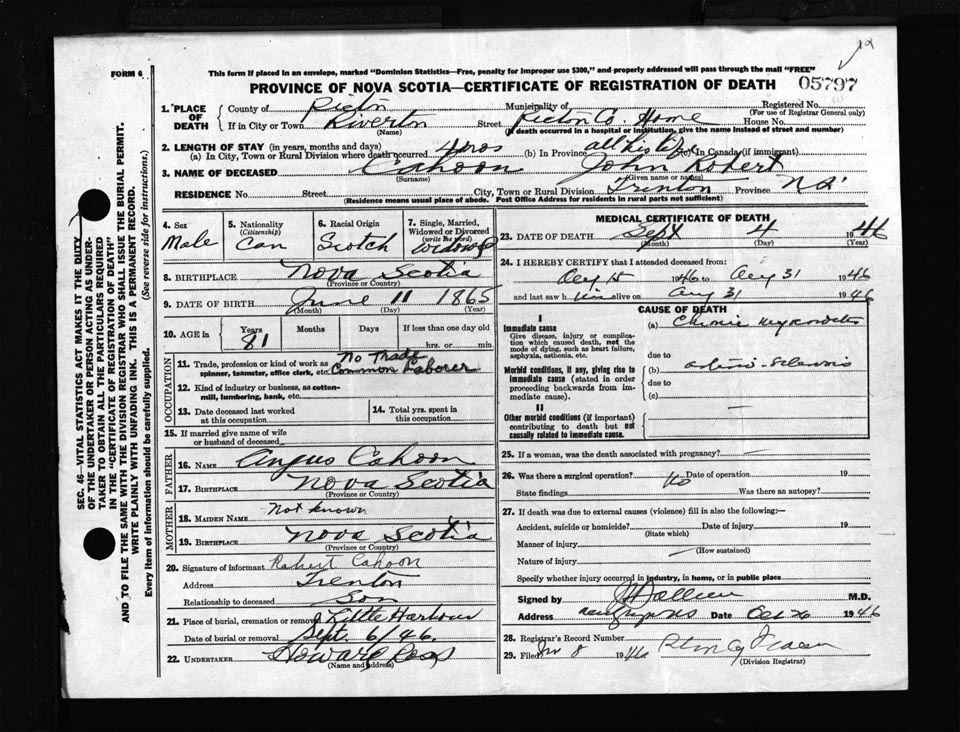 12
FORM 6
This form if placed in an envelope, marked "Dominion Statistics—Free, penalty for improper use $300," and properly addressed will pass through the mail "FREE"
PROVINCE OF NOVA SCOTIA—CERTIFICATE OF REGISTRATION OF DEATH
05797
1. PLACE OF DEATH
County of Pictou Municipality of Registered No.
(For use of Registrar General only)
If in City or Town Riverton Street Pictou Co. Home House No.
(Name) (If death occurred in a hospital or institution, give the name instead of street and number)
2. LENGTH OF STAY (in years, months and days)
(a) In City, Town or Rural Division where death occurred 4 mos (b) In Province all his life (c) In Canada (if immigrant)
3. NAME OF DECEASED Cahoon John Robert
(Surname) (Given name or names)
RESIDENCE No. Street City, Town or Rural Division Trenton Province N.S.
(Residence means usual place of abode. Post Office Address for residents in rural parts not sufficient)
SEC. 46—VITAL STATISTICS ACT MAKES IT THE DUTY
OF THE UNDERTAKER OR PERSON ACTING AS UNDER-
TAKER TO OBTAIN ALL THE PARTICULARS REQUIRED
IN THE "CERTIFICATE OF REGISTRATION OF DEATH"
AND TO FILE THE SAME WITH THE DIVISION REGISTRAR WHO SHALL ISSUE THE BURIAL PERMIT.
WRITE PLAINLY WITH UNFADING INK. THIS IS A PERMANENT RECORD.
Every item of information should be carefully supplied. (See reverse side for instructions.)
4. Sex Male
5. Nationality (Citizenship) Can
6. Racial Origin Scotch
7. Single, Married, Widowed or Divorced (write the word) widowed
8. BIRTHPLACE Nova Scotia
(Province or Country)
9. DATE OF BIRTH June 11 1865
(Month) (Day) (Year)
10. AGE in Years Months Days If less than one day
81 hrs. or min.
OCCUPATION
11. Trade, profession or kind of work as spinner, teamster, office clerk, etc. No Trade Common Laborer
12. Kind of industry or business, as cotton-mill, lumbering, bank, etc.
13. Date deceased last worked at this occupation
14. Total yrs. spent in this occupation
15. If married give name of wife or husband of deceased
FATHER
16. NAME Angus Cahoon
17. BIRTHPLACE Nova Scotia
(Province or Country)
MOTHER
18. MAIDEN NAME Not known
19. BIRTHPLACE Nova Scotia
(Province or Country)
20. Signature of informant Robert Cahoon
Address Trenton
Relationship to deceased Son
21. Place of burial, cremation or removal Little Harbour
Date of burial or removal Sept. 6/46.
22. UNDERTAKER Howard Ross
(Name and address)
MEDICAL CERTIFICATE OF DEATH
23. DATE OF DEATH Sept 4 1946
(Month) (Day) (Year)
24. I HEREBY CERTIFY that I attended deceased from:
Aug 15 1946 to Aug 31 1946
and last saw him alive on Aug 31 1946
CAUSE OF DEATH
I
Immediate cause
Give disease, injury or complication which caused death, not the mode of dying, such as heart failure, asphyxia, asthenia, etc.
(a) Chronic Myocarditis
due to
Morbid conditions, if any, giving rise to immediate cause (stated in order proceeding backwards from immediate cause).
(b)
due to
(c)
II
Other morbid conditions (if important) contributing to death but not causally related to immediate cause.
25. If a woman, was the death associated with pregnancy?
26. Was there a surgical operation? No Date of operation 19
State findings Was there an autopsy?
27. If death was due to external causes (violence) fill in also the following:—
Accident, suicide or homicide? Date of injury 19
(State which)
Manner of injury
(How sustained)
Nature of injury
Specify whether injury occurred in industry, in home, or in public place
Signed by M.D.
Address Date Oct 26 1946
28. Registrar's Record Number
29. Filed 8 1946
(Division Registrar)